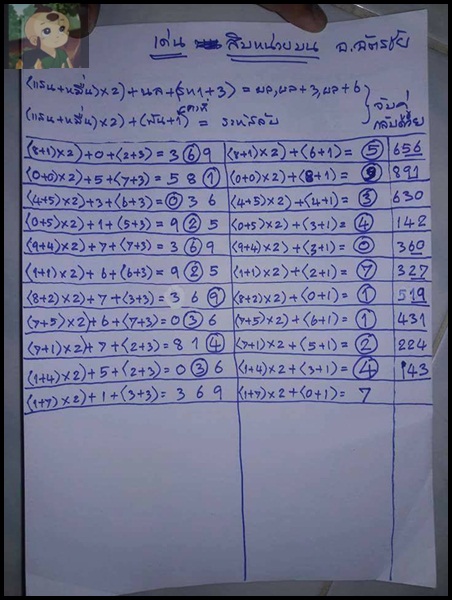 เด่น สิบหน่วยบน อ.ฉัตรชัย
((แสน+หมื่น)×2)+นล+( +3) = ผล,ผล+3,ผล+6
((แสน+หมื่น)×2)+(พัน+1) =
จับคู่
กลับด้วย
((8+1)×2)+0+(2+3) = 3 6 9 ((8+1)×2)+(6+1) = 5 656
((0+0)×2)+5+(7+3) = 5 8 1 ((0+0)×2)+(8+1) = 9 891
((4+5)×2)+3+(6+3) = 0 3 6 ((4+5)×2)+(4+1) = 3 630
((0+5)×2)+1+(5+3) = 9 2 5 ((0+5)×2)+(3+1) = 4 142
((9+4)×2)+7+(7+3) = 3 6 9 ((9+4)×2)+(3+1) = 0 360
((1+1)×2)+6+(6+3) = 9 2 5 ((1+1)×2)+(2+1) = 7 327
((8+2)×2)+7+(3+3) = 3 6 9 ((8+2)×2)+(0+1) = 1 519
((7+5)×2)+6+(7+3) = 0 3 6 ((7+5)×2)+(6+1) = 1 431
((7+1)×2)+7+(2+3) = 8 1 4 ((7+1)×2)+(5+1) = 2 224
((1+4)×2)+5+(2+3) = 0 3 6 ((1+4)×2)+(3+1) = 4 143
((1+7)×2)+1+(3+3) = 3 6 9 ((1+7)×2)+(0+1) = 7